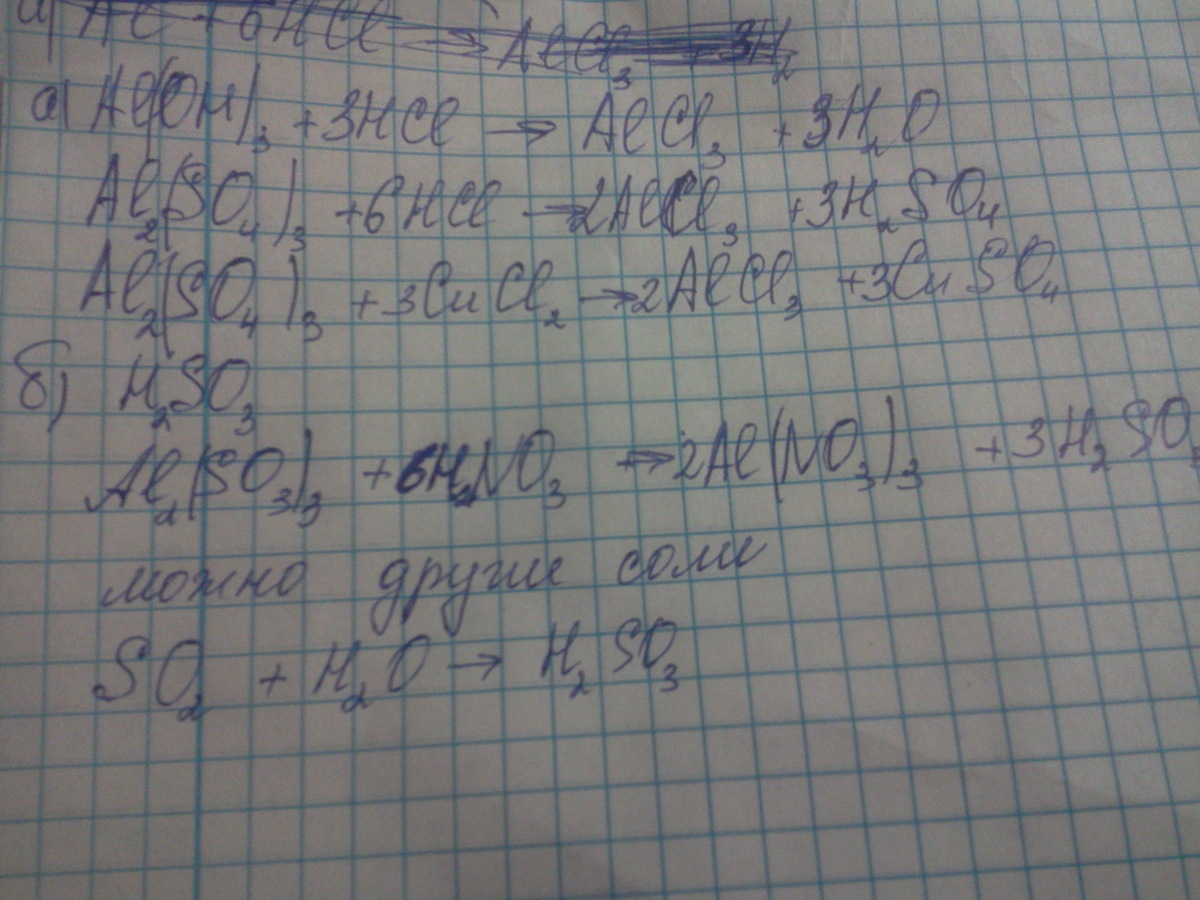 а) Al + 6HCl → AlCl₃ + 3H₂
а) Al(OH)₃ + 3HCl → AlCl₃ + 3H₂O
Al₂(SO₄)₃ + 6HCl → 2AlCl₃ + 3H₂SO₄
Al₂(SO₄)₃ + 3CuCl₂ → 2AlCl₃ + 3CuSO₄
б) H₂SO₃
Al₂(SO₃)₃ + 6HNO₃ → 2Al(NO₃)₃ + 3H₂SO
можно другие соли
SO₂ + H₂O → H₂SO₃